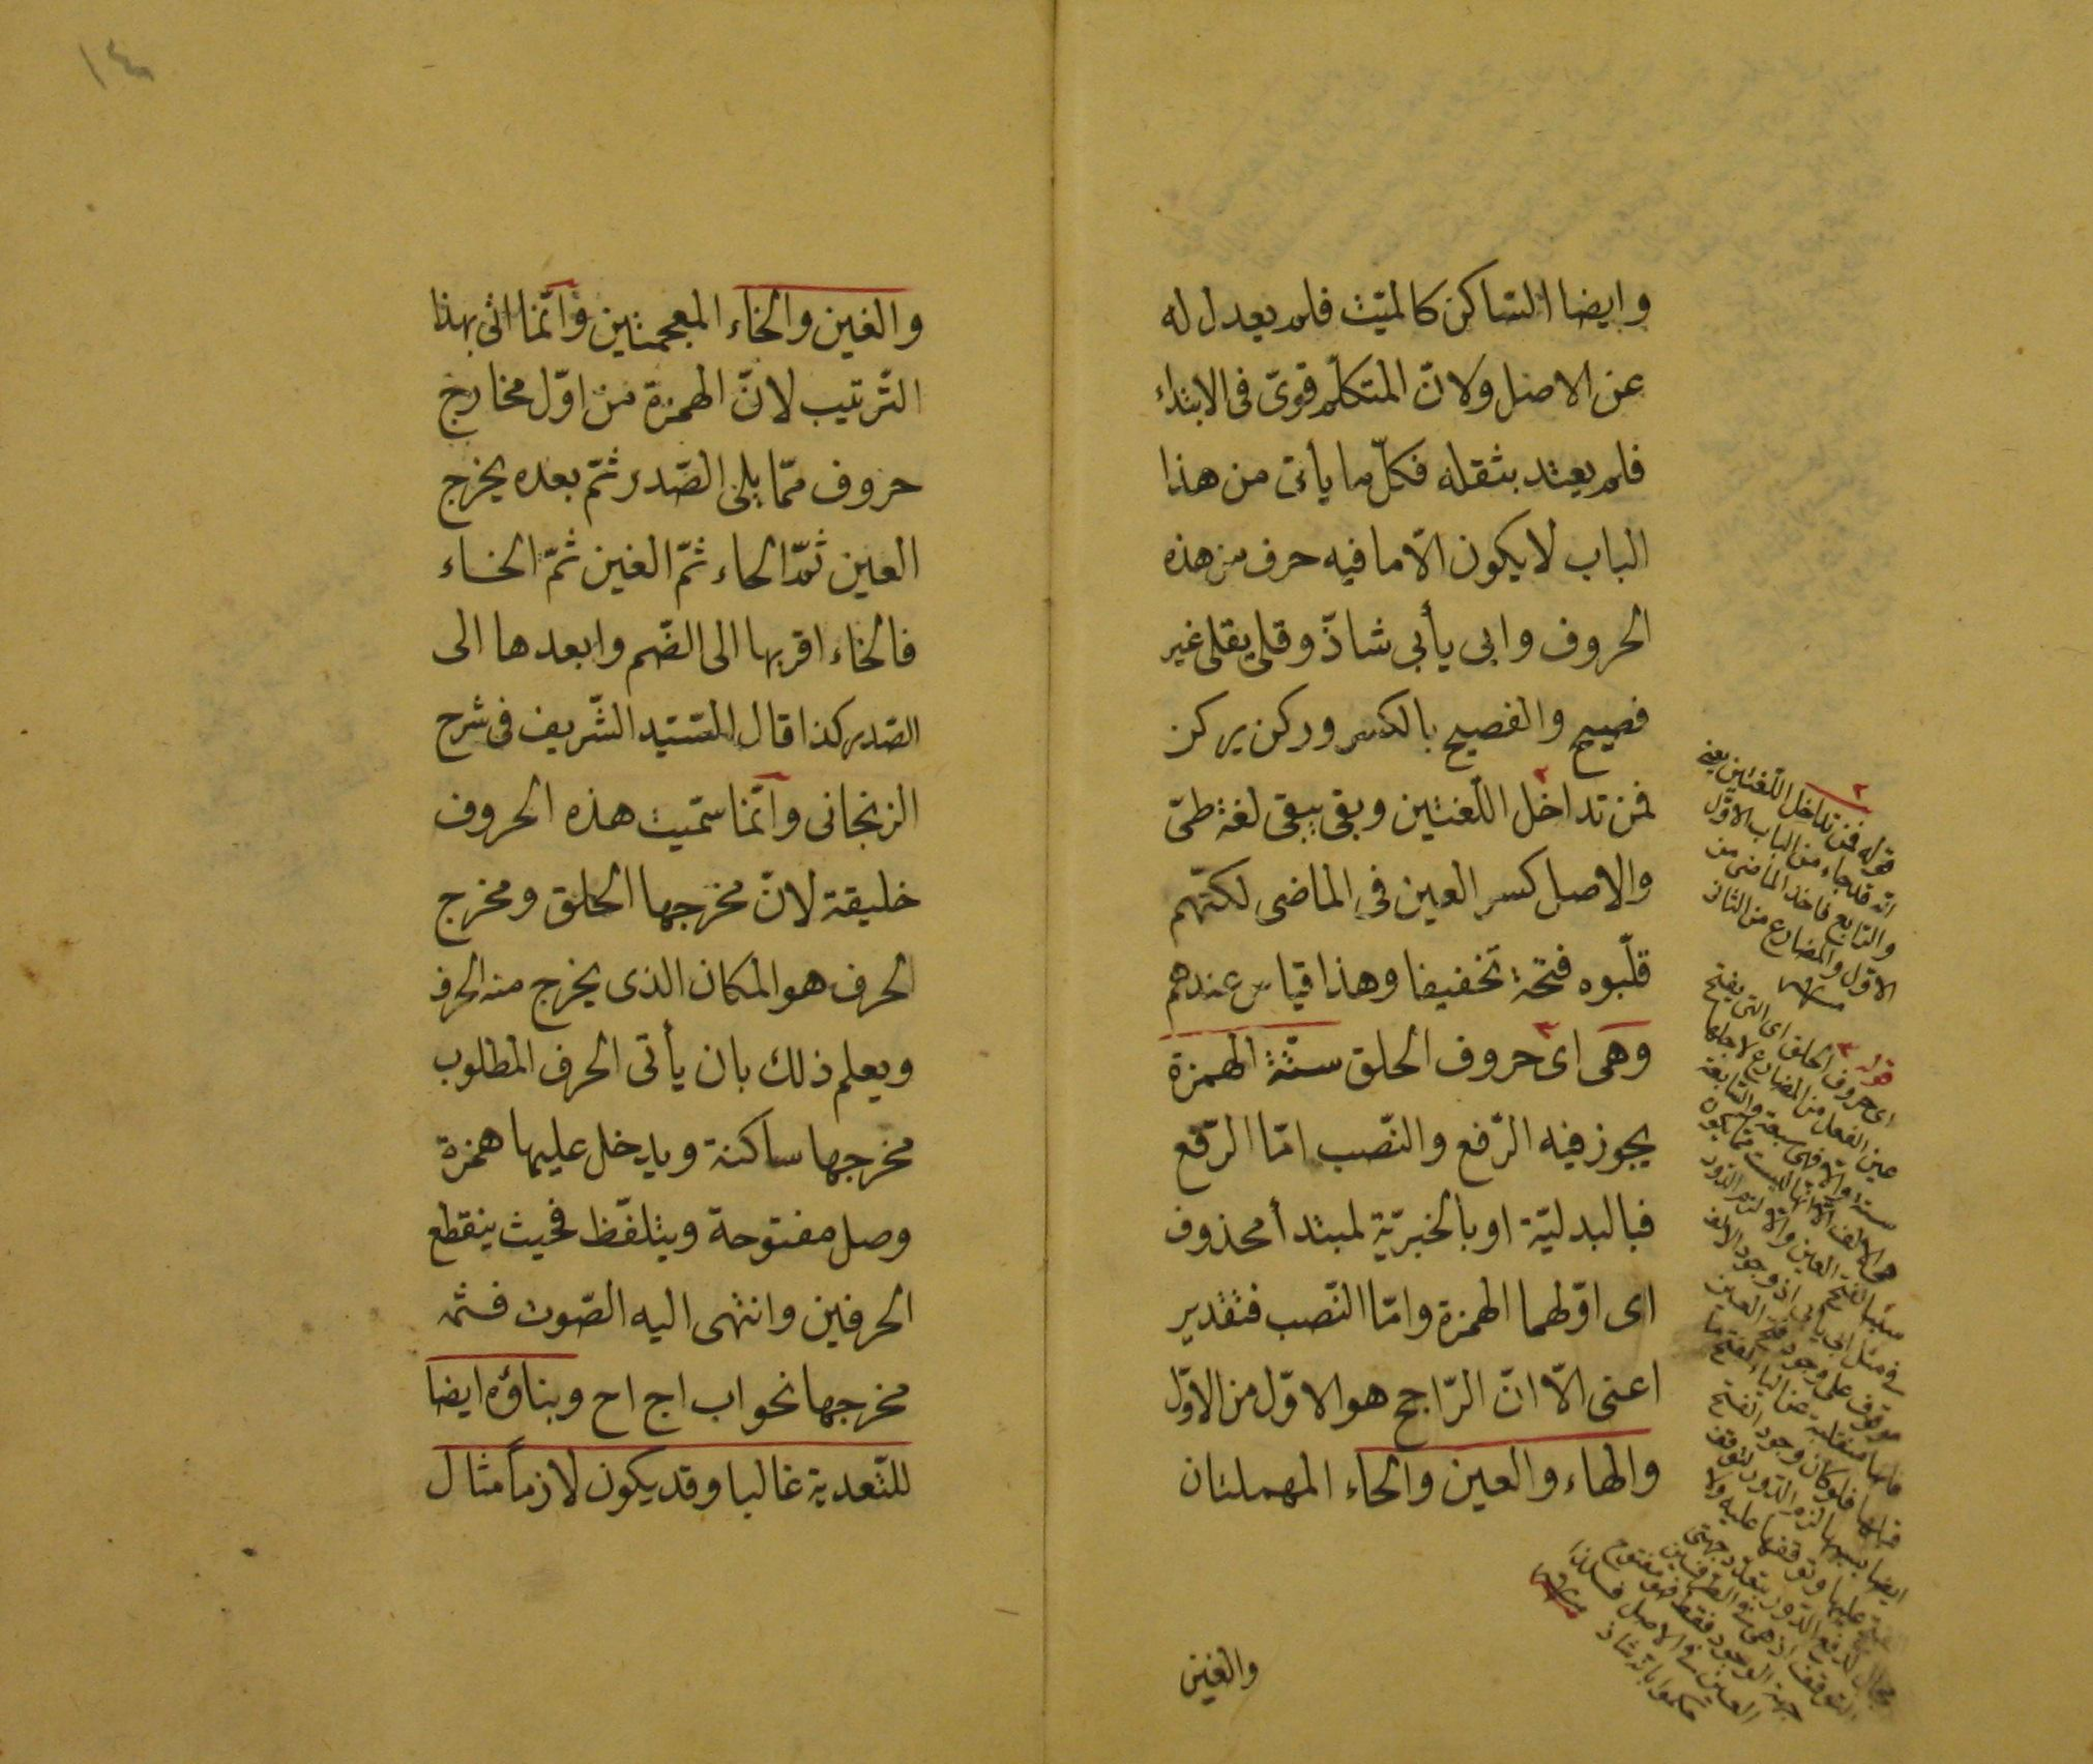 وايضا الساكن كالميّت فلم يعدل له
عن الاصل ولانّ المتكلّم قوىّ فى الابتداء
فلم يعتد بثقله فكلّ ما يأتى من هذا
الباب لا يكون الّا ما فيه حرف من هذه
الحروف وابى يأبى شاذّ وقلى يقلى غير
فصيح والفصيح بالكسر وركن يركن
فمن تداخل اللّغتين وبقى يبقى لغة طىّ
والاصل كسر العين فى الماضى لكنّهم
قلّبوه فتحة تخفيفا وهذا قياس عندهم
وهى اى حروف الحلق ستّة الهمزة
يجوز فيه الرّفع والنّصب امّا الرّفع
فبالبدليّة او بالخبريّة لمبتدأ محذوف
اى اوّلهما الهمزة وامّا النّصب فتقدير
اعنى الّا انّ الرّاجح هو الاوّل من الاوّل
والهاء والعين والحاء المهملتان
والغين
٢
قوله فمن تداخل اللّغتين يعنى
انّه قد جاء من الباب الاوّل
والرّابع فاخذ الماضى من
الاوّل والمضارع من الثانى
قوله
اى حروف الحلق اى التى يفتح
عين الفعل من المضارع لاجلها
ستة والّا فهى سبعة والسّابعة
هى الالف الّا انّها ليست ممّا يكون
سببا لفتح العين والّا لزم الدّور
فى مثل ابى يأبى اذ وجود الالف
موقوف على وجود فتح العين
١٤
والغين والخاء المعجمتين وانّما اتى بهذا
التّرتيب لانّ الهمزة من اوّل مخارج
حروف ممّا يلى الصّدر ثمّ بعده يخرج
العين ثمّ الحاء ثمّ الغين ثمّ الخاء
فالخاء اقربها الى الضّم وابعدها الى
الصّدر كذا قال السّيّد الشّريف فى شرح
الزنجانى وانّما سمّيت هذه الحروف
خليقة لانّ مخرجها الحلق ومخرج
الحرف هو المكان الذى يخرج منه الحرف
ويعلم ذلك بان يأتى الحرف المطلوب
مخرجها ساكنة ويدخل عليها همزة
وصل مفتوحة ويتلفّظ فحيث ينقطع
الحرفين وانتهى اليه الصّوت فثمّه
مخرجها نحو اب اج اح وبناؤه ايضا
للتّعدية غالبا وقد يكون لازماً مثال